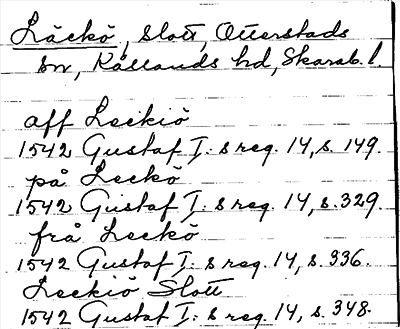 Läckö, slott, Otterstads
sn, Kållands hd, Skarab. l.
aff Leckiö
1542 Gustaf I: s reg. 14, s. 149.
på Leckö
1542 Gustaf I: s reg. 14, s. 329.
frå Leckö
1542 Gustaf I: s reg. 14, s. 336.
Leckiö Slott
1542 Gustaf I: s reg. 14, s. 348.